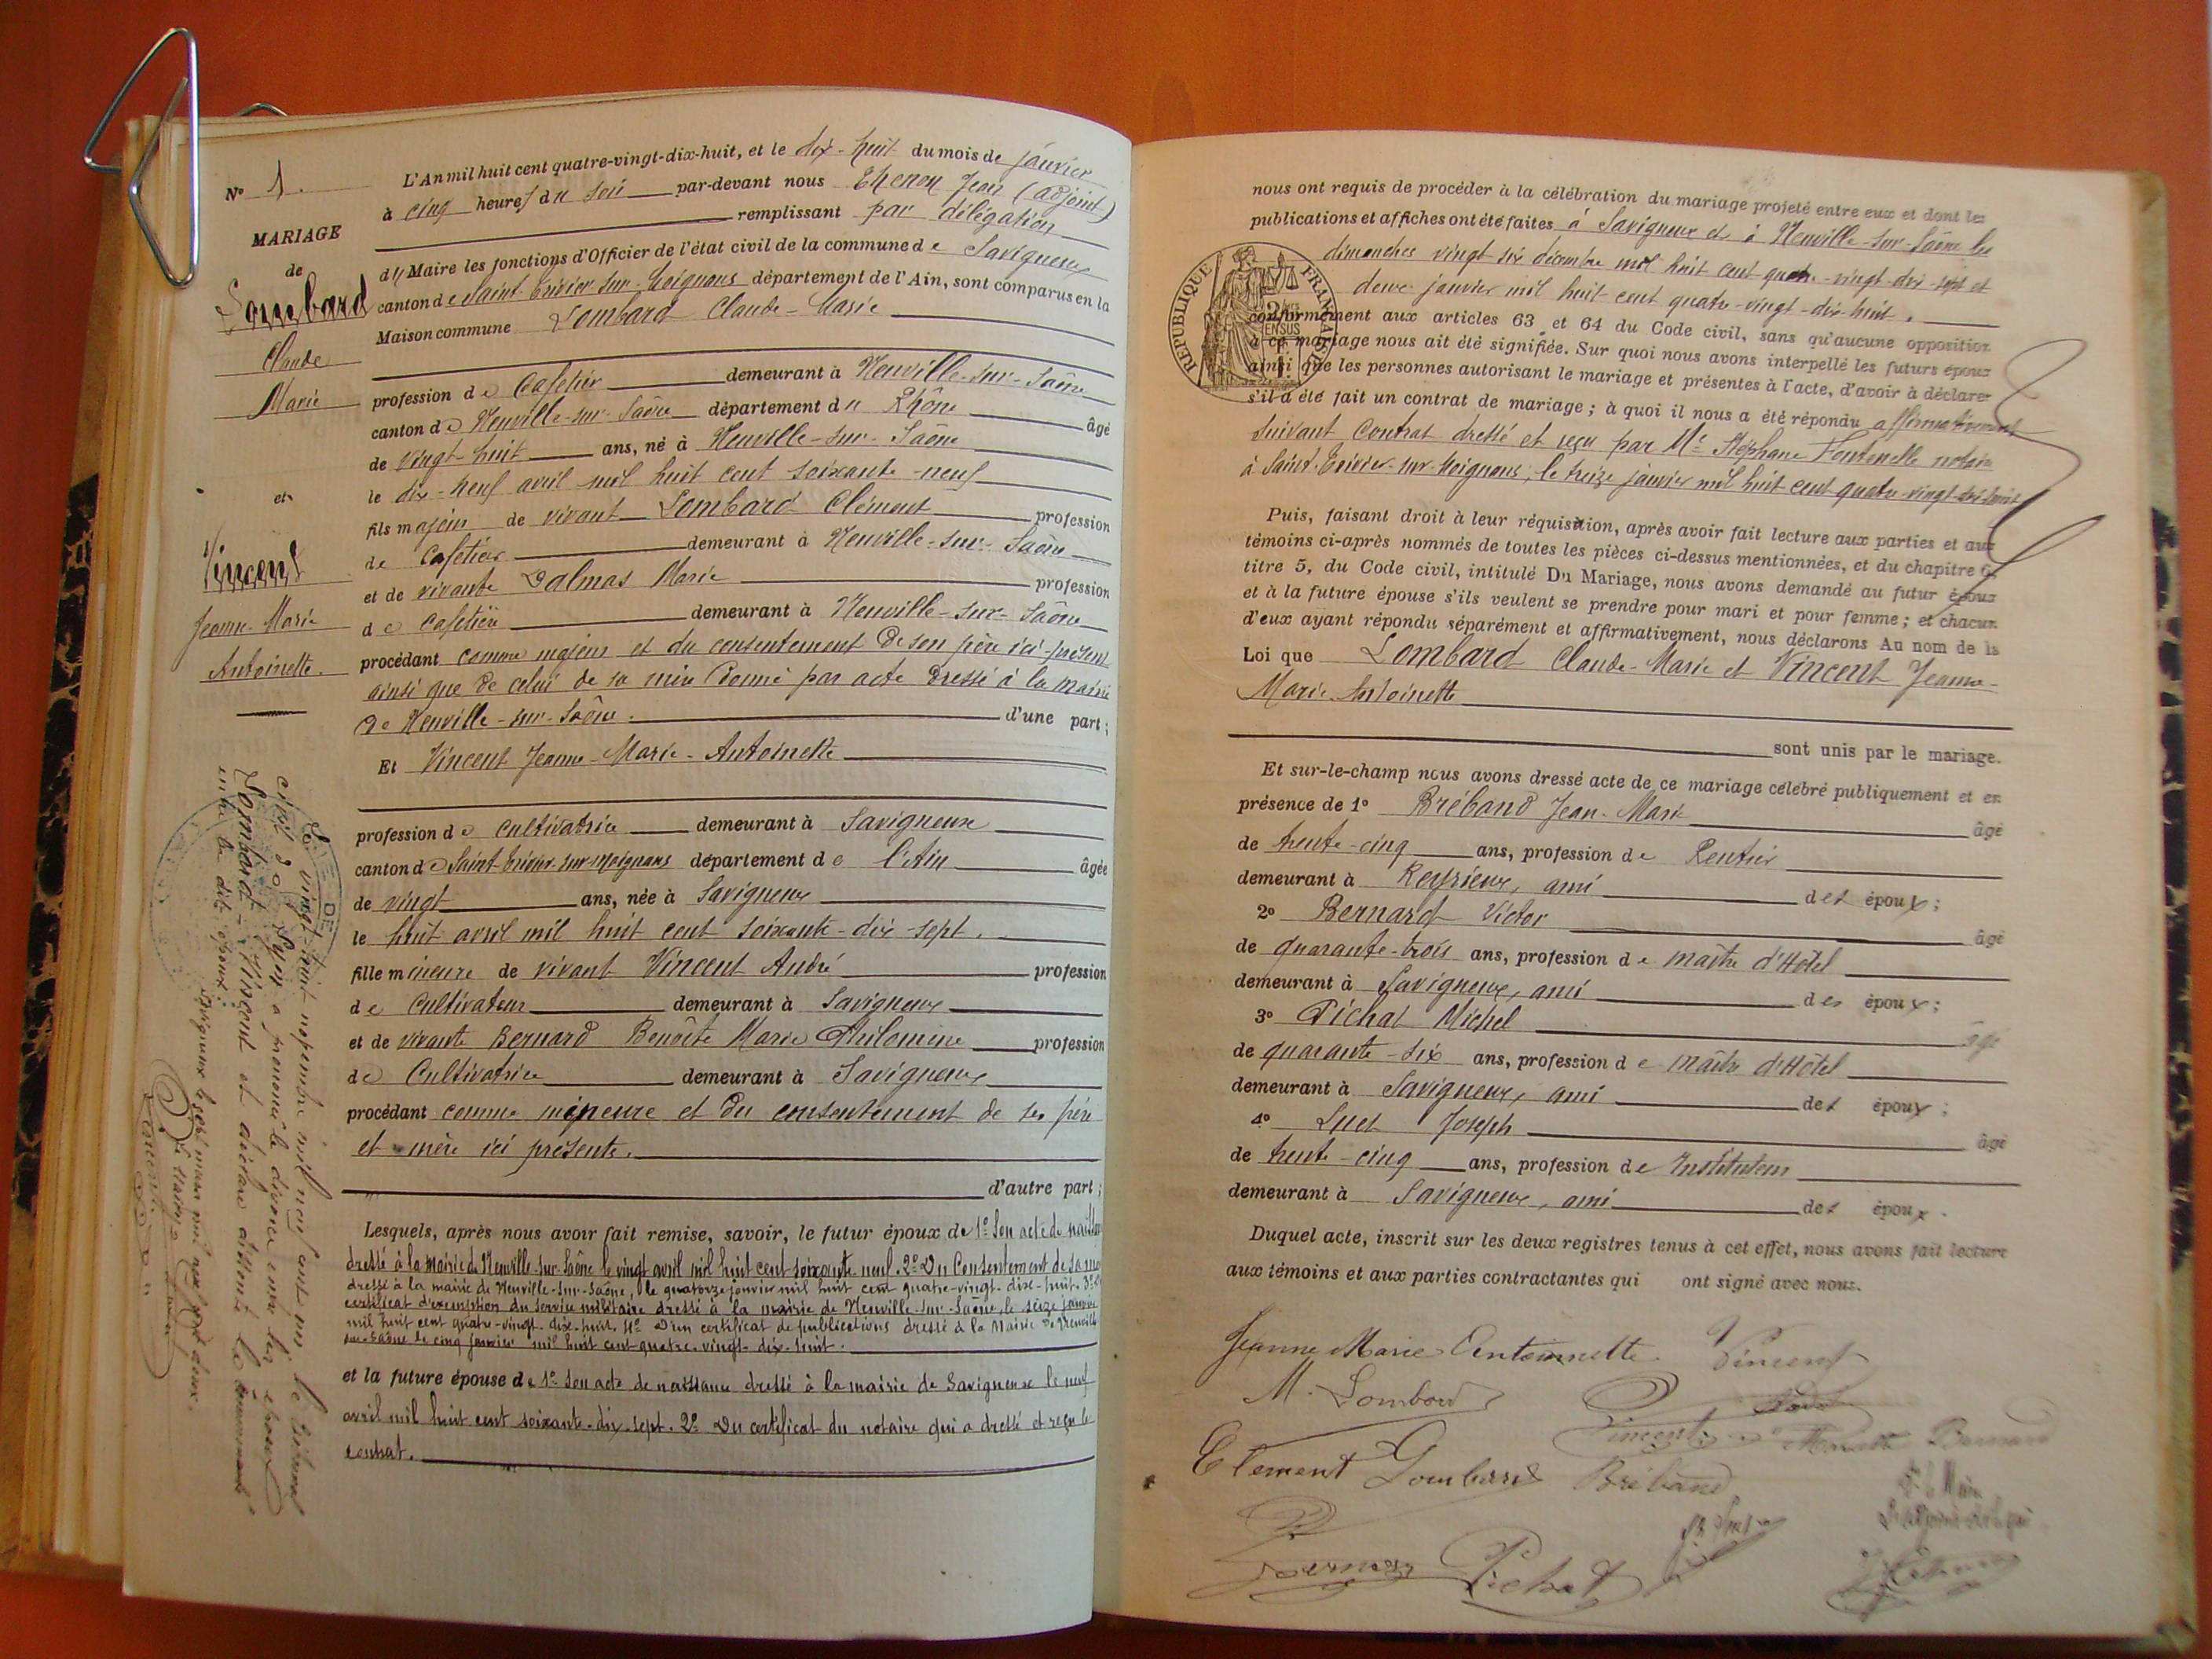 N° 1.
MARIAGE
de
Lombard
Claude
Marie
et
Vincent
Jeanne-Marie
Antoinette.
L'An mil huit cent quatre-vingt-dix-huit, et le dix-huit du mois de janvier
à cinq heures du soir par-devant nous Thenon Jean (adjoint)
remplissant par délégation
du Maire les fonctions d'Officier de l'état civil de la commune de Savigneux
canton de Saint-Trivier-sur-Moignans département de l'Ain, sont comparus en la
Maison commune Lombard Claude-Marie
profession de Cafetier demeurant à Neuville-sur-Saône
canton de Neuville-sur-Saône département du Rhône âgé
de vingt-huit ans, né à Neuville-sur-Saône
le dix-neuf avril mil huit cent soixante-neuf
fils majeur de vivant Lombard Clément profession
de Cafetier demeurant à Neuville-sur-Saône
et de vivante Dalmas Marie profession
de Cafetière demeurant à Neuville-sur-Saône
procédant comme majeur et du consentement de son père ici présent
ainsi que de celui de sa mère donné par acte dressé à la mairie
de Neuville-sur-Saône. d'une part;
Et Vincent Jeanne-Marie-Antoinette
profession de cultivatrice demeurant à Savigneux
canton de Saint-Trivier-sur-Moignans département de l'Ain âgée
de vingt ans, née à Savigneux
le huit avril mil huit cent soixante-dix-sept.
fille mineure de vivant Vincent André profession
de Cultivateur demeurant à Savigneux
et de vivante Bernard Benoîte Marie Philomène profession
de Cultivatrice demeurant à Savigneux
procédant comme mineure et du consentement de ses père
et mère ici présents.
d'autre part;
Lesquels, après nous avoir fait remise, savoir, le futur époux de 1° Son acte de naissance
dressé à la mairie de Neuville-sur-Saône le vingt avril mil huit cent soixante neuf. 2° Du Consentement de sa mère
dressé à la mairie de Neuville-sur-Saône, le quatorze janvier mil huit cent quatre-vingt-dix-huit. 3°
certificat d'exemption du service militaire dressé à la mairie de Neuville-sur-Saône, le seize janvier
mil huit cent quatre-vingt-dix-huit. 4° D'un certificat de publications dressé à la Mairie de Neuville
sur-Saône le cinq janvier mil huit cent quatre-vingt-dix-huit.
et la future épouse de 1° Son acte de naissance dressé à la mairie de Savigneux le neuf
avril mil huit cent soixante-dix-sept. 2° Du certificat du notaire qui a dressé et reçu le
contrat.
Le vingt-huit novembre mil neuf cent un le tribunal
civil de Lyon a prononcé le divorce entre les époux
Lombard - Vincent et déclaré dissoute la communauté
entre les dits époux.
Savigneux le
Le Maire
DE
nous ont requis de procéder à la célébration du mariage projeté entre eux et dont les
publications et affiches ont été faites à Savigneux et à Neuville-sur-Saône les
dimanches vingt six décembre mil huit cent quatre-vingt-dix-sept et
deux janvier mil huit cent quatre-vingt-dix-huit.
RÉPUBLIQUE FRANÇAISE
conformément aux articles 63 et 64 du Code civil, sans qu'aucune opposition
à ce mariage nous ait été signifiée. Sur quoi nous avons interpellé les futurs époux
ainsi que les personnes autorisant le mariage et présentes à l'acte, d'avoir à déclarer
s'il a été fait un contrat de mariage; à quoi il nous a été répondu affirmativement
suivant Contrat dressé et reçu par Me Stéphane Fontenelle notaire
à Saint-Trivier-sur-Moignans, le treize janvier mil huit cent quatre-vingt-dix-huit
Puis, faisant droit à leur réquisition, après avoir fait lecture aux parties et aux
témoins ci-après nommés de toutes les pièces ci-dessus mentionnées, et du chapitre 6,
titre 5, du Code civil, intitulé Du Mariage, nous avons demandé au futur époux
et à la future épouse s'ils veulent se prendre pour mari et pour femme; et chacun
d'eux ayant répondu séparément et affirmativement, nous déclarons Au nom de la
Loi que Lombard Claude-Marie et Vincent Jeanne-
Marie-Antoinette
sont unis par le mariage.
Et sur-le-champ nous avons dressé acte de ce mariage célébré publiquement et en
présence de 1° Bréband Jean-Marie âgé
de trente-cinq ans, profession de Rentier
demeurant à Reyrieux, ami des époux;
2° Bernard Victor âgé
de quarante-trois ans, profession de maître d'Hôtel
demeurant à Savigneux, ami des époux;
3° Pichat Michel âgé
de quarante-six ans, profession de Maître d'Hôtel
demeurant à Savigneux, ami des époux;
4° Luct Joseph âgé
de trente-cinq ans, profession de Instituteur
demeurant à Savigneux, ami des époux.
Duquel acte, inscrit sur les deux registres tenus à cet effet, nous avons fait lecture
aux témoins et aux parties contractantes qui ont signé avec nous.
Jeanne Marie Antoinette Vincent
M. Lombard
Vincent Bernard
Clement Lombard Bréband
Bernard Pichat